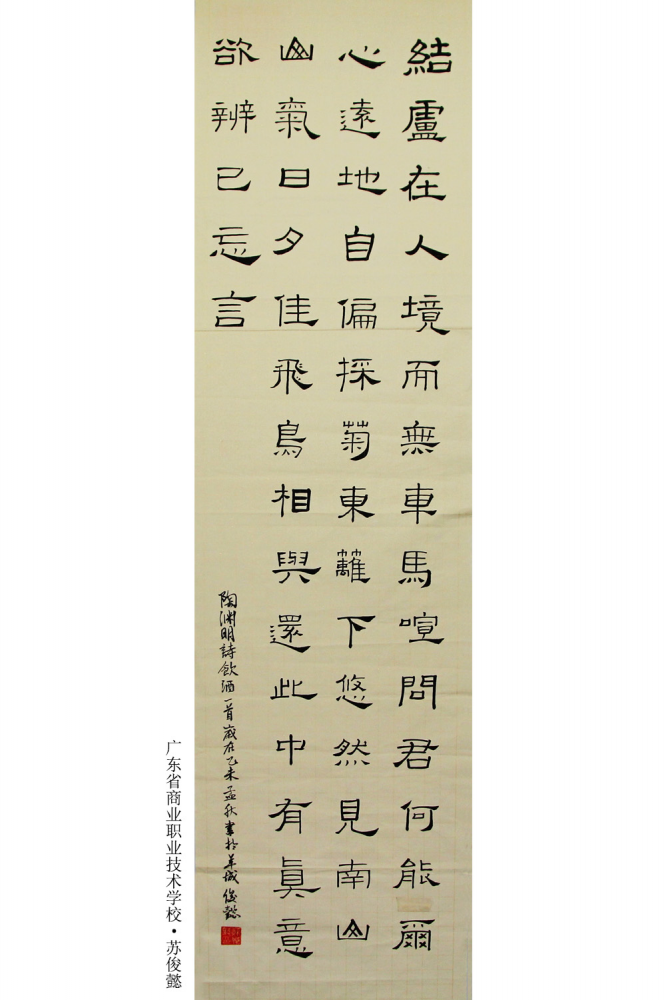 結廬在人境而無車馬喧問君何能爾
心遠地自偏採菊東籬下悠然見南山
山氣日夕佳飛鳥相與還此中有眞意
欲辨已忘言
陶淵明詩飲酒一首歲在乙未孟秋書於羊城俊懿
广东省商业职业技术学校·苏俊懿